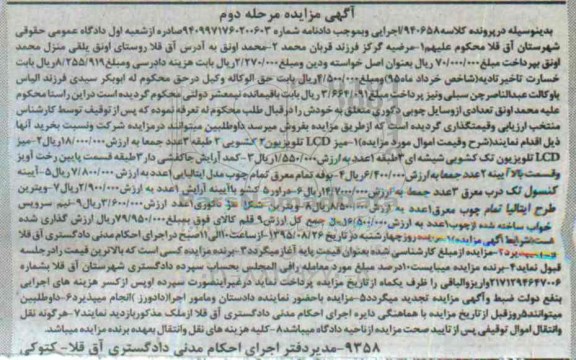 آگهی مزایده مرحله دوم
بدینوسیله درپرونده کلاسه ۹۴۰۶۵۸/اجرایی وبموجب دادنامه شماره ۹۴۰۹۹۷۱۷۶۰۲۰۰۶۰۳صادره ازشعبه اول دادگاه عمومی حقوقی
شهرستان آق قلا محکوم علیهم۱-مرضیه گرگز فرزند قربان محمد ۲-محمد اونق به آدرس آق قلا روستای اونق یلقی منزل محمد
اونق بپرداخت مبلغ ۷۰/۰۰۰/۰۰۰ ریال بعنوان اصل خواسته ودین ومبلغ ۲/۲۷۰/۰۰۰ریال بابت هزینه دادرسی ومبلغ ۸/۲۵۵/۹۱۹ریال بابت
خسارت تاخیر تادیه(شاخص خرداد ماه۹۵) ومبلغ ۴/۵۰۰/۰۰۰ریال بابت حق الوکاله وکیل درحق محکوم له ابوبکر سیدی فرزند الیاس
باوکالت عبدالناصرچن سبلی ونیز پرداخت مبلغ ۳/۶۶۴/۰۹۱ ریال بابت باقیمانده نیمعشر دولتی محکوم گردیده است در این راستا محکوم
علیه محمد اونق تعدادی ازوسایل چوبی دکوری متعلق به خودش را درقبال طلب محکوم له تعرفه نموده که پس از توقیف توسط کارشناس
منتخب ارزیابی وقیمتگذاری گردیده است که ازطریق مزایده بفروش میرسد داوطلبین میتوانند درمزایده شرکت ونسبت بخرید آنها
ذیل اقدام نمایند(شرح وقیمت اموال مورد مزایده)۱-میز LCD تلویزیون۲ کشویی ۲طبقه ۳عدد جمعا به ارزش ۱۸/۰۰۰/۰۰۰ریال۲-میز
LCD تلویزیون تک کشویی شیشه ای ۳طبقه ۱عدد به ارزش۱/۵۵۰/۰۰۰ریال ۳-کمد آرایش جاکفشی دار ۳طبقه قسمت پایین رخت آویز
وقسمت بالا آیینه ۲عدد جمعا به ارزش ۶/۴۰۰/۰۰۰ریال ۴-بوفه تمام معرق تمام چوب مدل ایتالیایی ۱عدد به ارزش ۷/۸۰۰/۰۰۰ ریال۵-آیینه
کنسول تک درب معرق ۳عدد جمعا به ارزش ۱۴/۷۰۰/۰۰۰ریال ۶-دراور۵ کشو باآیینه آرایش ۱عدد به ارزش ۲/۹۰۰/۰۰۰ریال ۷-ویترین
طرح ایتالیا تمام چوب معرق ۱عدد به ارزش عدد ارزش ۳/۶۰۰/۰۰۰ریال ۹-نیم سرویس
خواب ساخته شده ازچوب ۱عدد به ارزش ۱۶/۵۰۰/۰۰۰ریال جمع کل ارزش ۹ قلم کالای فوق بمبلغ ۷۹/۹۵۰/۰۰۰ریال ارزش گذاری شده
است شرایط آگهی مزایده روز چهارشنبه در تاریخ ۱۳۹۵/۰۸/۲۶-ازساعت ۱۰الی۱۱ صبح دراجرای احکام مدنی دادگستری آق قلا
۲-مزایده از مبلغ کارشناسی شده بعنوان قیمت پایه آغازمیگردد۳-برنده مزایده کسی است که بالاترین قیمت رادرجلسه
قبول نماید۴-برنده مزایده میبایست۱۰درصد مبلغ مورد معامله رافی المجلس بحساب سپرده دادگستری شهرستان آق قلا بشماره
۲۱۷۱۲۹۴۶۴۷۰۰۶واریزوالباقی را ظرف یکماه ازتاریخ مزایده پرداخت نماید درغیراینصورت سپرده اوپس ازکسر هزینه های اجرایی
بنفع دولت ضبط وآگهی مزایده تجدید میگردد۵-مزایده باحضور نماینده دادستان ومامور اجرا(دادورز )انجام میپذیرد۶-داوطلبین
میتوانند۵روزقبل از تاریخ مزایده با هماهنگی دایره اجرای احکام مدنی دادگستری آق قلا ازملک مذکوربازدید نمایند۷-هرگونه نقل
وانتقال اموال توقیفی پس از تایید صحت مزایده ازناحیه دادگاه میباشد۸-کلیه هزینه های نقل وانتقال بعهده برنده مزایده میباشد.
۹۳۵۸-مدیردفتر اجرای احکام مدنی دادگستری آق قلا- کتوکی